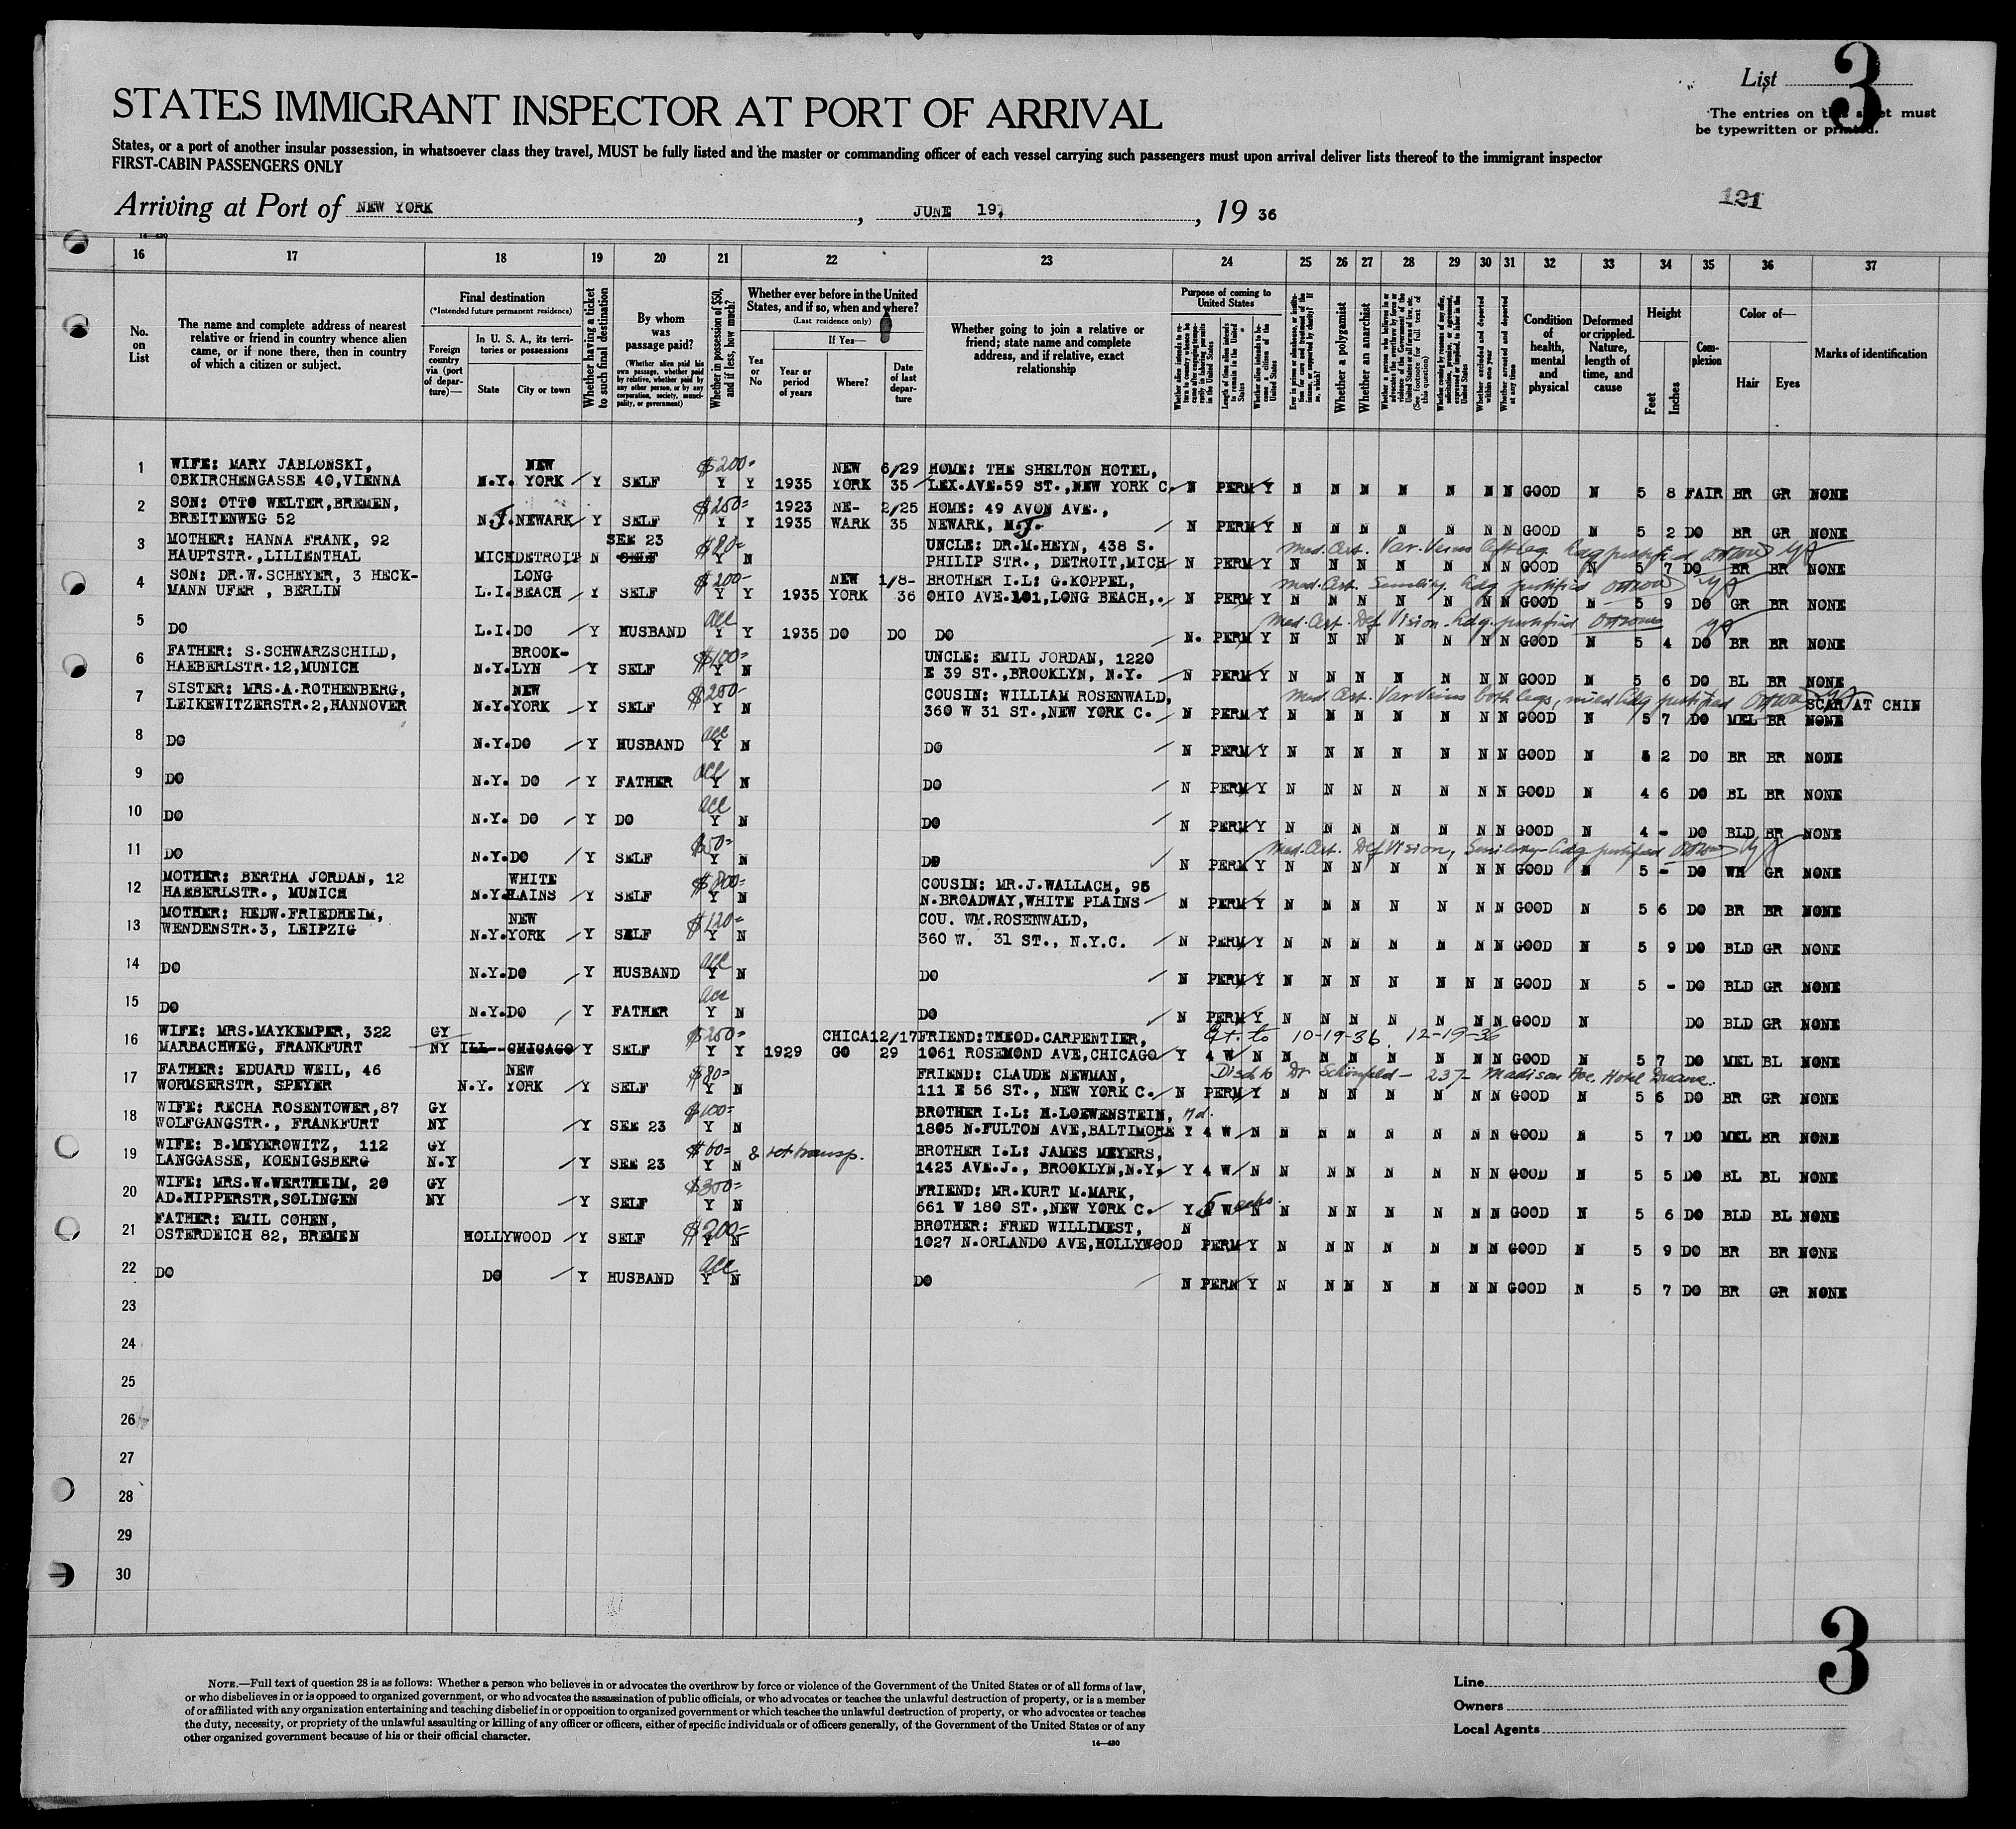 List 3
The entries on this sheet must
be typewritten or printed.
STATES IMMIGRANT INSPECTOR AT PORT OF ARRIVAL
States, or a port of another insular possession, in whatsoever class they travel, MUST be fully listed and the master or commanding officer of each vessel carrying such passengers must upon arrival deliver lists thereof to the immigrant inspector
FIRST-CABIN PASSENGERS ONLY
Arriving at Port of NEW YORK, JUNE 19, 19 36
121
14-430
16 17 18 19 20 21 22 23 24 25 26 27 28 29 30 31 32 33 34 35 36 37
No. on List
The name and complete address of nearest relative or friend in country whence alien came, or if none there, then in country of which a citizen or subject.
Final destination
(*Intended future permanent residence)
Foreign country via (port of departure)—
In U. S. A., its territories or possessions
State
City or town
Whether having a ticket to such final destination
By whom was passage paid?
(Whether alien paid his own passage, whether paid by relative, whether paid by any other person, or by any corporation, society, municipality, or government)
Whether in possession of $50, and if less, how much?
Whether ever before in the United States, and if so, when and where?
(Last residence only)
Yes or No
If Yes—
Year or period of years
Where?
Date of last departure
Whether going to join a relative or friend; state name and complete address, and if relative, exact relationship
Purpose of coming to United States
Length of time alien intends to remain in the United States
Whether alien intends to become a citizen of the United States
Whether a polygamist
Whether an anarchist
Whether excluded and deported within one year
Whether arrested and deported at any time
Condition of health, mental and physical
Deformed or crippled. Nature, length of time, and cause
Height
Feet
Inches
Complexion
Color of—
Hair
Eyes
Marks of identification
1 WIFE: MARY JABLONSKI, NEW $200- NEW 6/29 HOME: THE SHELTON HOTEL,
OBKIRCHENGASSE 40,VIENNA N.Y. YORK Y SELF Y Y 1935 YORK 35 LEX.AVE.59 ST.,NEW YORK C. N PERM Y N N N N N N N GOOD N 5 8 FAIR BR GR NONE
2 SON: OTTO WELTER,BREMEN, $250= 1923 NE- 2/25 HOME: 49 AVON AVE.,
BREITENWEG 52 N.J. NEWARK Y SELF Y Y 1935 WARK 35 NEWARK, N.J. N PERM Y N N N N N N N GOOD N 5 2 DO BR GR NONE
3 MOTHER: HANNA FRANK, 92 SEE 23 $80= UNCLE: DR.M.HEYN, 438 S. Med. Cert. Var. Veins left leg. Ldg justified
HAUPTSTR.,LILIENTHAL MICH DETROIT N SELF Y N PHILIP STR., DETROIT,MICH N PERM Y N N N N N N N GOOD N 5 7 DO BR BR NONE
4 SON: DR.W.SCHEYER, 3 HECK- LONG $200- NEW 1/8- BROTHER I.L: G.KOPPEL, Med. Cert. Senility. Ldg justified
MANN UFER , BERLIN L.I. BEACH Y SELF Y Y 1935 YORK 36 OHIO AVE.101,LONG BEACH,. N PERM Y N N N N N N N GOOD N 5 9 DO GR BR NONE
5 acc Med. Cert. Def Vision - Ldg. justified
DO L.I. DO Y HUSBAND Y Y 1935 DO DO DO N. PERM Y N N N N N N N GOOD N 5 4 DO BR BR NONE
6 FATHER: S.SCHWARZSCHILD, BROOK- $100= UNCLE: EMIL JORDAN, 1220
HAEBERLSTR.12,MUNICH N.Y. LYN Y SELF Y N E 39 ST.,BROOKLYN, N.Y. N PERM Y N N N N N N N GOOD N 5 6 DO BL BR NONE
7 SISTER: MRS.A.ROTHENBERG, NEW $250- COUSIN: WILLIAM ROSENWALD, Med. Cert. Var Veins both legs, mild Ldg justified SCAR AT CHIN
LEIKEWITZERSTR.2,HANNOVER N.Y. YORK Y SELF Y N 360 W 31 ST.,NEW YORK C. N PERM Y N N N N N N N GOOD N 5 7 DO MEL BR NONE
8 DO N.Y. DO Y HUSBAND acc Y N DO N PERM Y N N N N N N N GOOD N 5 2 DO BR BR NONE
9 DO N.Y. DO Y FATHER acc Y N DO N PERM Y N N N N N N N GOOD N 4 6 DO BL BR NONE
10 DO N.Y. DO Y DO acc Y N DO N PERM Y N N N N N N N GOOD N 4 - DO BLD BR NONE
11 $50= Med. Cert. Def Vision, Senility- Ldg justified
DO N.Y. DO Y SELF Y N DO N PERM Y N N N N N N N GOOD N 5 - DO WH GR NONE
12 MOTHER: BERTHA JORDAN, 12 WHITE $800= COUSIN: MR.J.WALLACH, 95
HAEBERLSTR., MUNICH N.Y. PLAINS Y SELF Y N N.BROADWAY,WHITE PLAINS N PERM Y N N N N N N N GOOD N 5 6 DO BR BR NONE
13 MOTHER: HEDW.FRIEDHEIM, NEW $120= COU. WM.ROSENWALD,
WENDENSTR.3, LEIPZIG N.Y. YORK Y SELF Y N 360 W. 31 ST., N.Y.C. N PERM Y N N N N N N N GOOD N 5 9 DO BLD GR NONE
14 DO N.Y. DO Y HUSBAND acc Y N DO N PERM Y N N N N N N N GOOD N 5 - DO BLD GR NONE
15 DO N.Y. DO Y FATHER acc Y N DO N PERM Y N N N N N N N GOOD N DO BLD GR NONE
16 WIFE: MRS.MAYKEMPER, 322 GY $250= CHICA 12/17 FRIEND:THEOD.CARPENTIER, Ext. to 10-19-36. 12-19-36
MARBACHWEG, FRANKFURT NY ILL CHICAGO Y SELF Y Y 1929 GO 29 1061 ROSEMOND AVE,CHICAGO Y 4 W N N N N N N N N GOOD N 5 7 DO MEL BL NONE
17 FATHER: EDUARD WEIL, 46 NEW $80= FRIEND: CLAUDE NEWMAN, Disch to Dr Schönfeld - 237- Madison Ave. Hotel Duane.
WORMSERSTR, SPEYER N.Y. YORK Y SELF Y N 111 E 56 ST., NEW YORK C. N PERM Y N N N N N N N GOOD N 5 6 DO BR GR NONE
18 WIFE: RECHA ROSENTOWER,87 GY $100= BROTHER I.L: H.LOEWENSTEIN, Md.
WOLFGANGSTR., FRANKFURT NY Y SEE 23 Y N 1805 N.FULTON AVE,BALTIMORE Y 4 W N N N N N N N N GOOD N 5 7 DO MEL BR NONE
19 WIFE: B.MEYEROWITZ, 112 GY $60= & ret transp. BROTHER I.L: JAMES MEYERS,
LANGGASSE, KOENIGSBERG N.Y Y SEE 23 Y N 1423 AVE.J., BROOKLYN,N.Y. Y 4 W N N N N N N N N GOOD N 5 5 DO BL BL NONE
20 WIFE: MRS.W.WERTHEIM, 20 GY $300= FRIEND: MR.KURT M.MARK,
AD.HIPPERSTR,SOLINGEN NY Y SELF Y N 661 W 180 ST.,NEW YORK C. Y 8 W N N N N N N N N GOOD N 5 6 DO BLD BL NONE
21 FATHER: EMIL COHEN, $200- BROTHER: FRED WILLIMEST, N
OSTERDEICH 82, BREMEN HOLLYWOOD Y SELF Y N 1027 N.ORLANDO AVE,HOLLYWOOD PERM Y N N N N N N N GOOD N 5 9 DO BR BR NONE
22 DO DO Y HUSBAND acc Y N DO N PERM Y N N N N N N N GOOD N 5 7 DO BR GR NONE
23
24
25
26
27
28
29
30
NOTE.—Full text of question 28 is as follows: Whether a person who believes in or advocates the overthrow by force or violence of the Government of the United States or of all forms of law,
or who disbelieves in or is opposed to organized government, or who advocates the assassination of public officials, or who advocates or teaches the unlawful destruction of property, or is a member
of or affiliated with any organization entertaining and teaching disbelief in or opposition to organized government or which teaches the unlawful destruction of property, or who advocates or teaches
the duty, necessity, or propriety of the unlawful assaulting or killing of any officer or officers, either of specific individuals or of officers generally, of the Government of the United States or of any
other organized government because of his or their official character.
14—430
Line
Owners
Local Agents
3